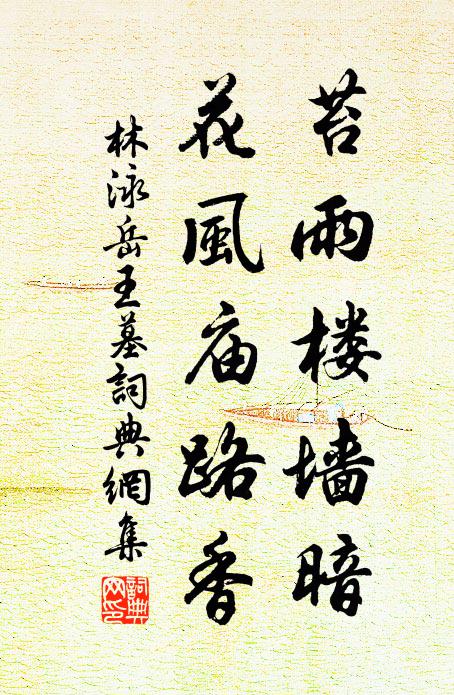 苔雨楼墙暗
花風庙路香
林泳岳王墓詞典網集
詞典网印